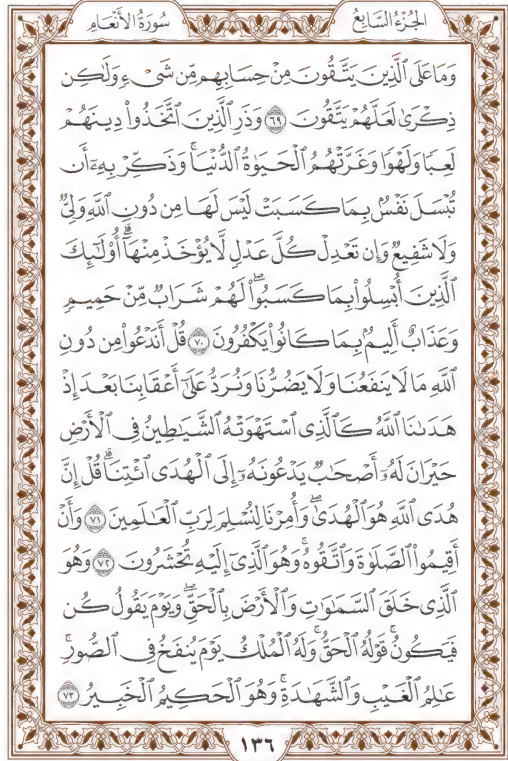 الجزء السابع سورة الأنعام
وَمَا عَلَى ٱلَّذِينَ يَتَّقُونَ مِنْ حِسَابِهِم مِّن شَىْءٍ وَلَٰكِن
ذِكْرَىٰ لَعَلَّهُمْ يَتَّقُونَ ٦٩ وَذَرِ ٱلَّذِينَ ٱتَّخَذُوا۟ دِينَهُمْ
لَعِبًا وَلَهْوًا وَغَرَّتْهُمُ ٱلْحَيَوٰةُ ٱلدُّنْيَا ۚ وَذَكِّرْ بِهِۦٓ أَن
تُبْسَلَ نَفْسٌۢ بِمَا كَسَبَتْ لَيْسَ لَهَا مِن دُونِ ٱللَّهِ وَلِىٌّ
وَلَا شَفِيعٌ وَإِن تَعْدِلْ كُلَّ عَدْلٍ لَّا يُؤْخَذْ مِنْهَآ ۗ أُو۟لَٰٓئِكَ
ٱلَّذِينَ أُبْسِلُوا۟ بِمَا كَسَبُوا۟ ۖ لَهُمْ شَرَابٌ مِّنْ حَمِيمٍ
وَعَذَابٌ أَلِيمٌۢ بِمَا كَانُوا۟ يَكْفُرُونَ ٧٠ قُلْ أَنَدْعُوا۟ مِن دُونِ
ٱللَّهِ مَا لَا يَنفَعُنَا وَلَا يَضُرُّنَا وَنُرَدُّ عَلَىٰٓ أَعْقَابِنَا بَعْدَ إِذْ
هَدَىٰنَا ٱللَّهُ كَٱلَّذِى ٱسْتَهْوَتْهُ ٱلشَّيَٰطِينُ فِى ٱلْأَرْضِ
حَيْرَانَ لَهُۥٓ أَصْحَٰبٌ يَدْعُونَهُۥٓ إِلَى ٱلْهُدَى ٱئْتِنَا ۗ قُلْ إِنَّ
هُدَى ٱللَّهِ هُوَ ٱلْهُدَىٰ ۖ وَأُمِرْنَا لِنُسْلِمَ لِرَبِّ ٱلْعَٰلَمِينَ ٧١ وَأَنْ
أَقِيمُوا۟ ٱلصَّلَوٰةَ وَٱتَّقُوهُ ۚ وَهُوَ ٱلَّذِىٓ إِلَيْهِ تُحْشَرُونَ ٧٢ وَهُوَ
ٱلَّذِى خَلَقَ ٱلسَّمَٰوَٰتِ وَٱلْأَرْضَ بِٱلْحَقِّ ۖ وَيَوْمَ يَقُولُ كُن
فَيَكُونُ ۚ قَوْلُهُ ٱلْحَقُّ ۚ وَلَهُ ٱلْمُلْكُ يَوْمَ يُنفَخُ فِى ٱلصُّورِ ۚ
عَٰلِمُ ٱلْغَيْبِ وَٱلشَّهَٰدَةِ ۚ وَهُوَ ٱلْحَكِيمُ ٱلْخَبِيرُ ٧٣
١٣٦